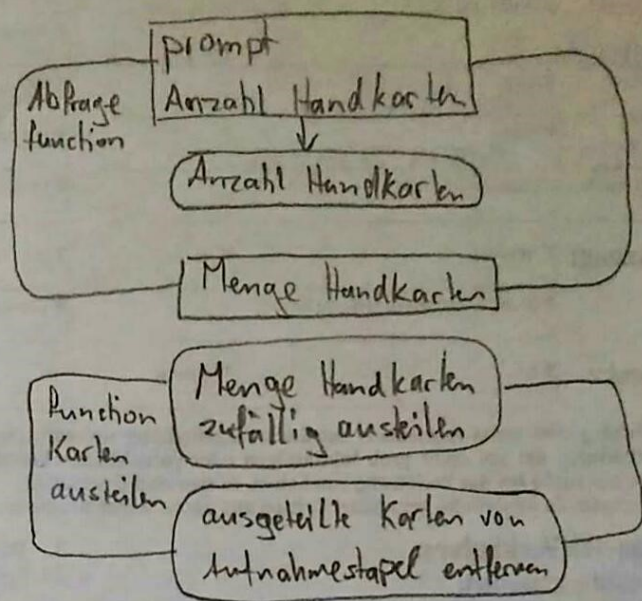 prompt
Anzahl Handkarten
Abfrage
function
Anzahl Handkarten
Menge Handkarten
Function
Karten
austeilen
Menge Handkarten
zufällig austeilen
ausgeteilte Karten von
Aufnahmestapel entfernen